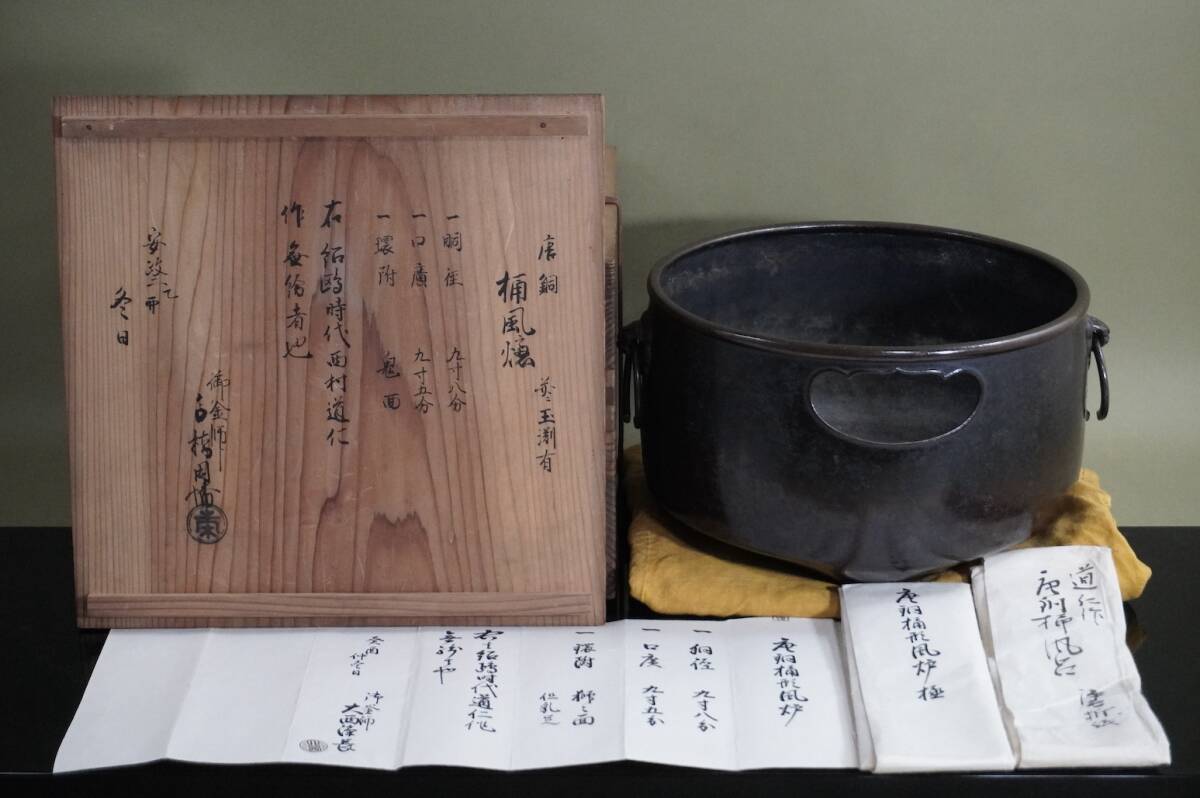 唐銅
桶風爐
蓋玉渕有
一胴径 九寸八分
一口廣 九寸五分
一環附 鬼面
右紹鷗時代西村道仁
作無紛者也
安政二乙卯
冬日
御釜師
唐銅桶形風炉
一胴径 九寸八分
一口広 九寸五分
一環附 獅之面
但乳足
右ハ紹鴎時代道仁作
御釜師
大西浄長
唐銅桶形風炉 極
道仁作
唐銅桶風呂